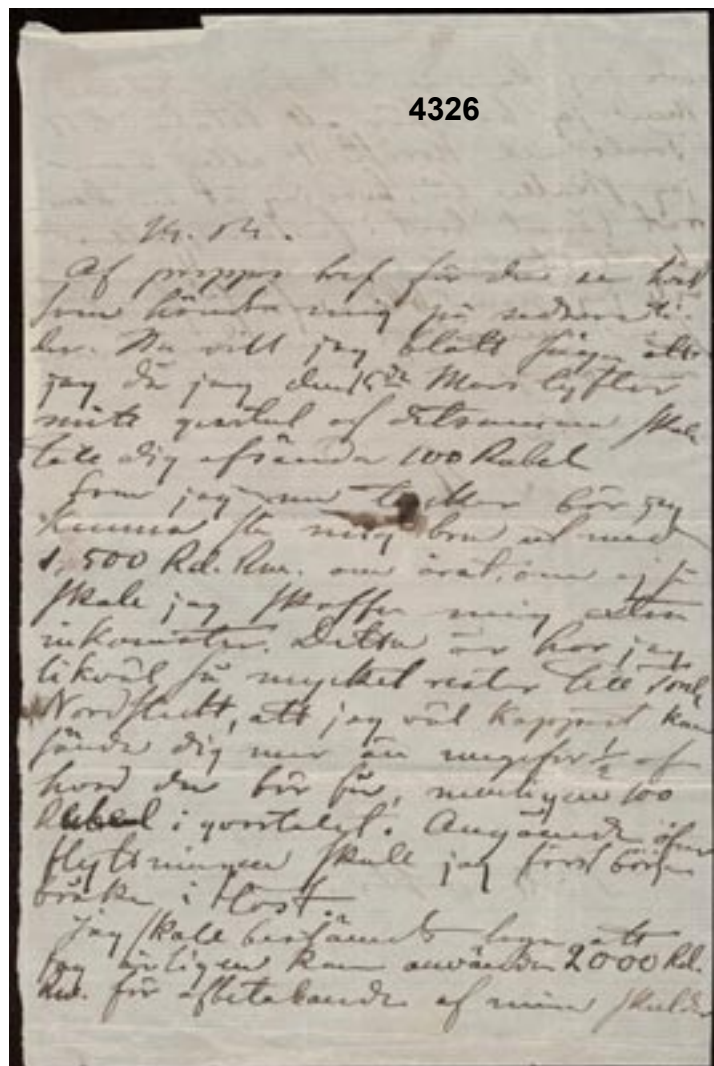 4326
Af pappas bref får du se hvad
som händt mig på sednare ti-
der. Nu vill jag blott säga att
jag då jag den 15de Mars lyfter
mitt qvartal och detsamma skall
till dig afsända 100 Rubel
Som jag nu tror bör jag
kunna slå mig bra ut med
1,500 Rd. Rm. om året, om ej så
skall jag skaffa mig extra
inkomster. Detta år har jag
likväl så mycket rester till
Nordstedt, att jag väl knappast kan
sända dig mer än ungefär ½ af
hvad du bör få, nemligen 100
Rubel i qvartalet. Angående öfver
flyttningen skall jag först börja
bråka i höst.
Jag skall bestämdt laga att
jag årligen kan använda 2000 Rd.
Rm. för afbetalande af mina skulder